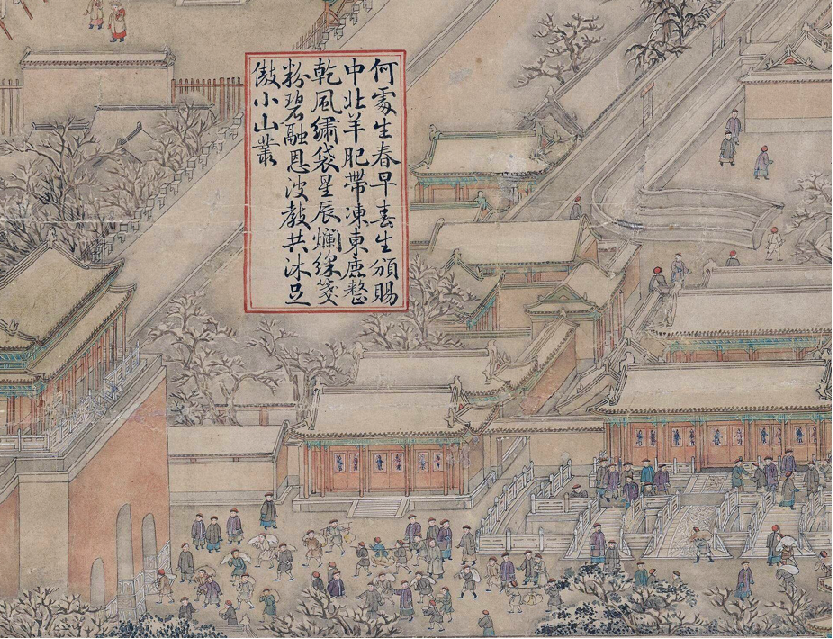 何處生春早春生頒賜
中北羊肥帶凍東鹿整
乾風繡袋星辰爛綵箋
粉碧融恩波教共沐足
傲小山叢